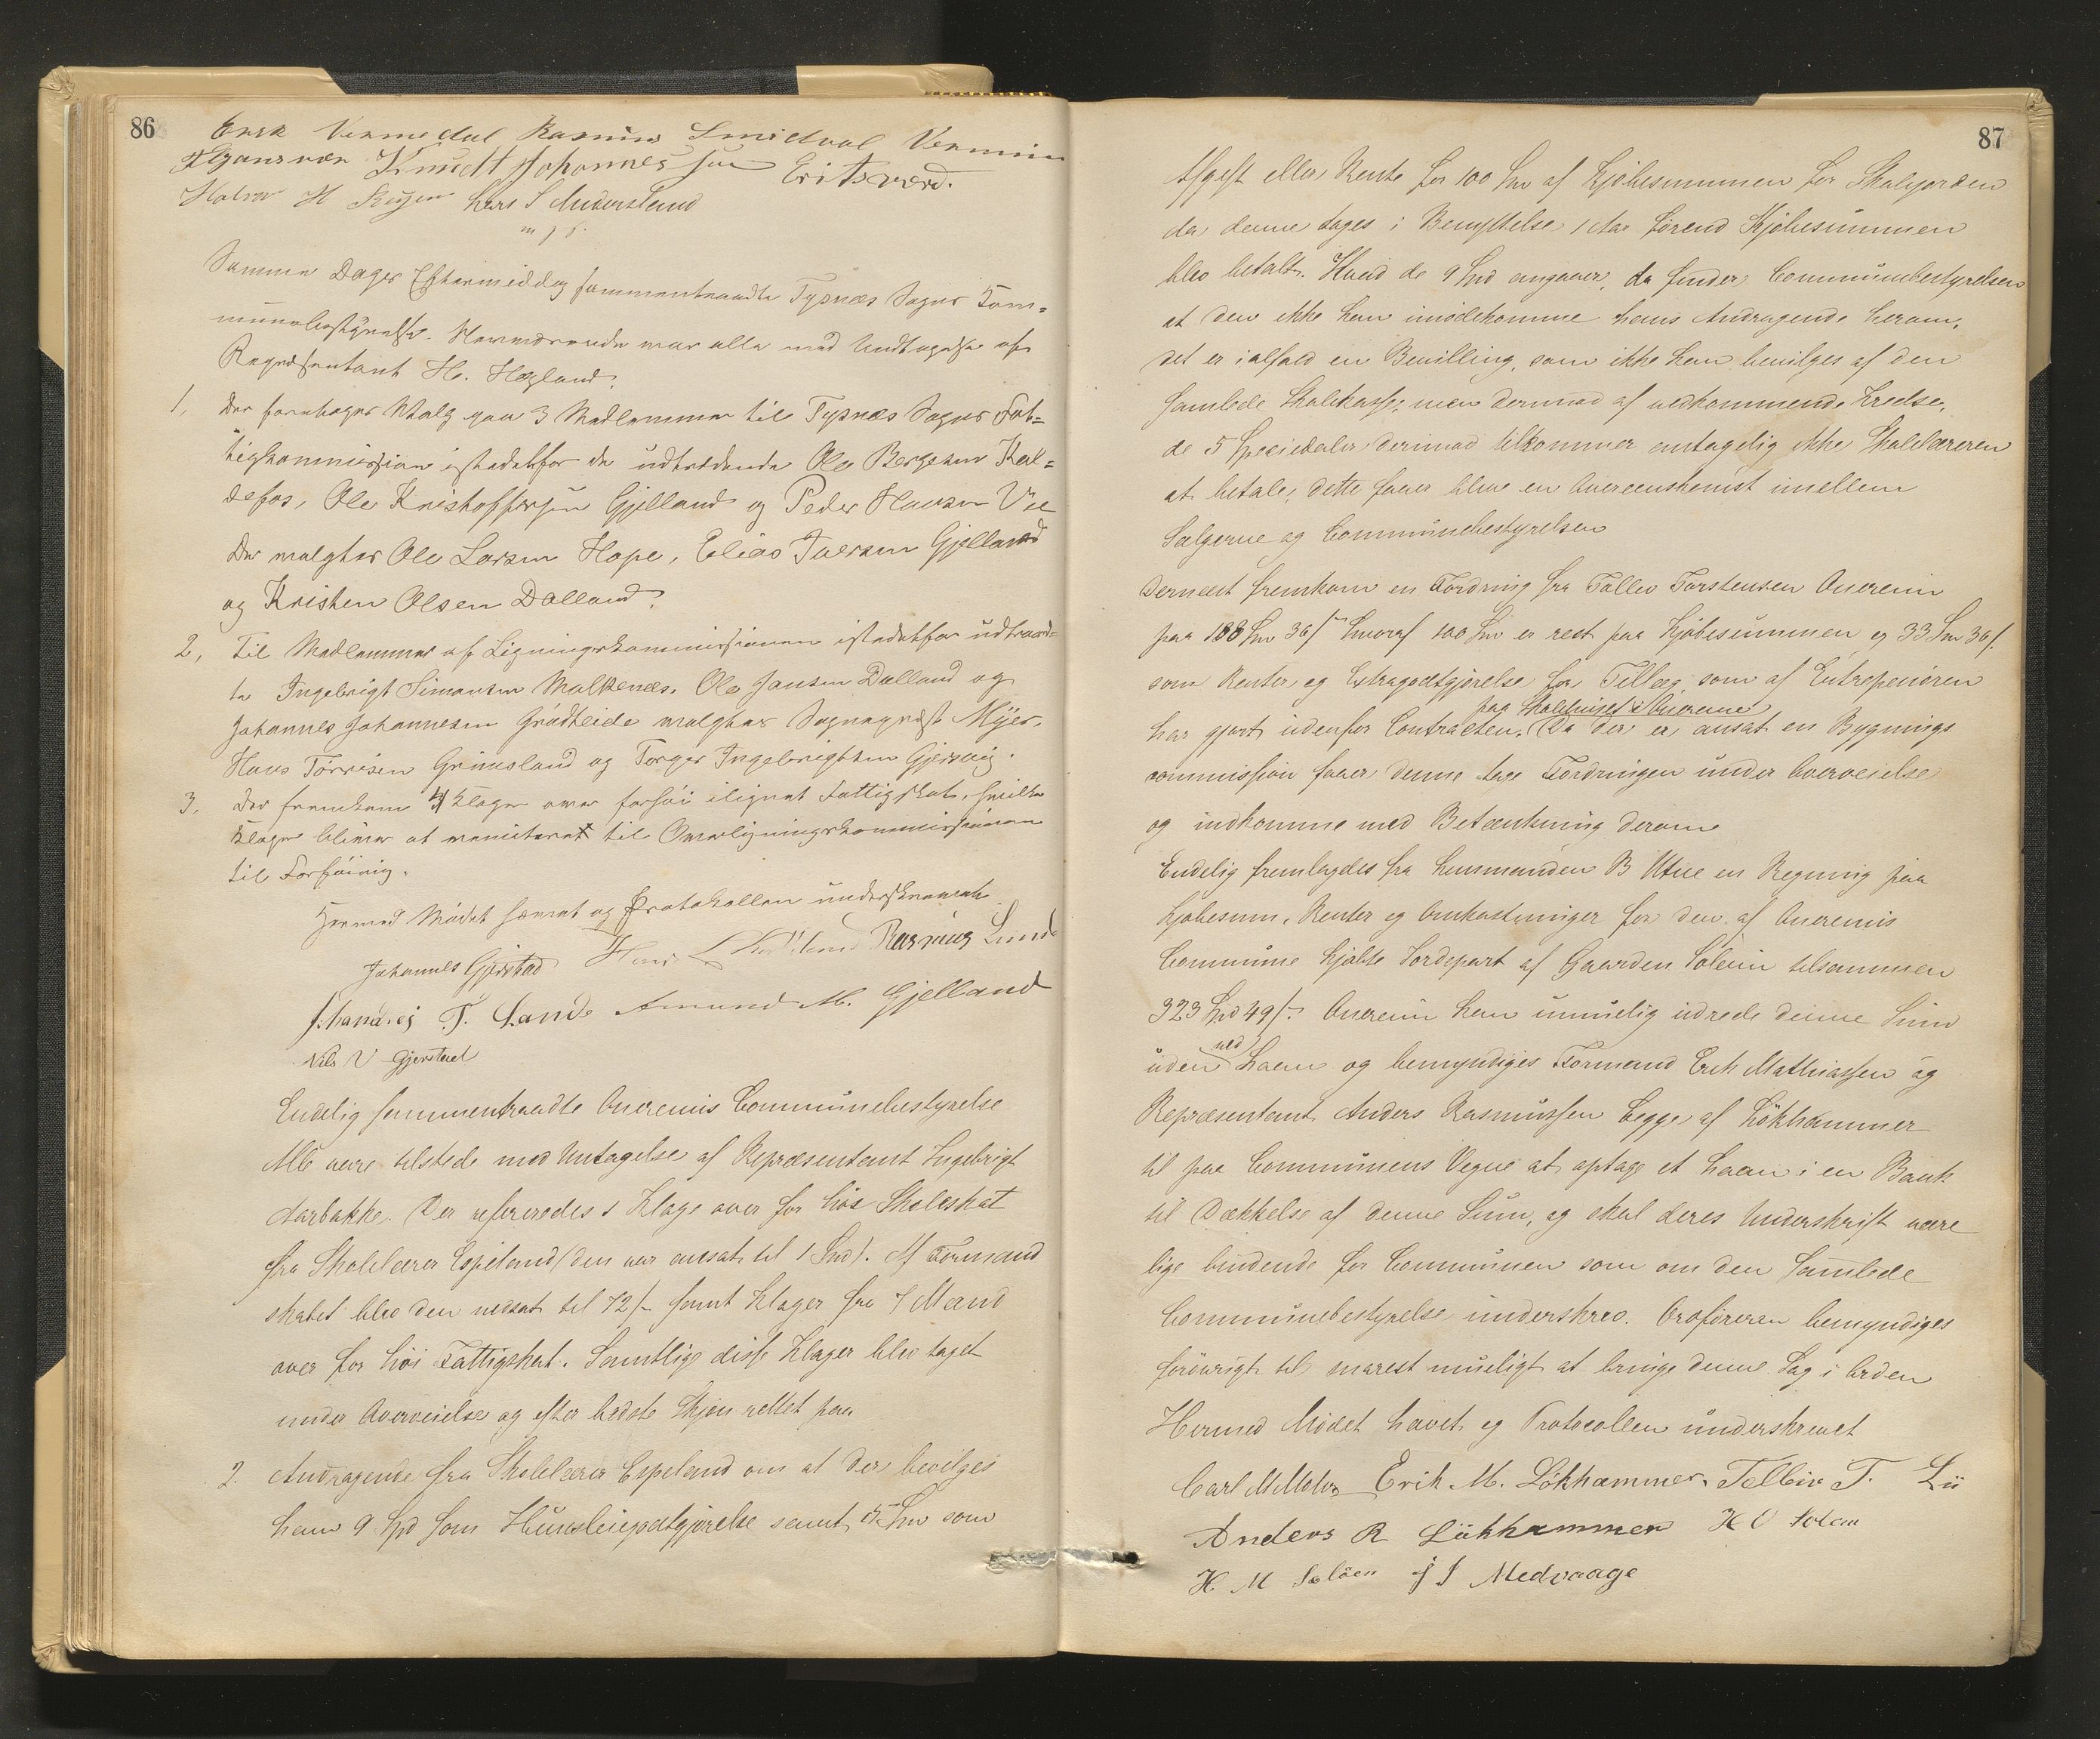 86
Erik Vermedal Rasmus Smidval
Knudt Johannessen Eritsværd.
H Lars S Andersland
Samme Dags Eftermiddag sammentraadte Tysnæs Sogns Kom=
munebestyrelse. Nærværende var alle med Undtagelse af
Repræsentant H. Hegland.
1, Der foretages Valg paa 3 Medlemmer til Tysnæs Sogns Fat=
tigkommission istedetfor de udtrædende Ole Bergesen Kal=
defos, Ole Kristoffersen Gjelland og Peder Hansen Vie
Der valgtes Ole Larsen Hope, Elias Iversen Gjelland
og Kristen Olsen Dalland.
2, Til Medlemmer af Ligningskommissionen istedetfor udtraad=
te Ingebrigt Simonsen Malkenes, Ole Jansen Dalland og
Johannes Johannesen Grödteide valgtes Sogneprest Myer,
Hans Törrisen Grimsland og Torger Ingebrigtsen Gjersvig.
3, Der fremkom 4 Klager over forhöi ilignet Fattigskat, hvilke
Klager bliver at remitteret til Overligningskommissionen
til Forföining.
Hermed Mödet hævet og Protokollen underskrevet.
Johannes Gjerstad Hans Rasmus Lunde
T. Lande Amund M. Gjelland
Nils V Gjerstad
Endelig sammentraadte Onerems Communebestyrelse
Alle vare tilstede med Untagelse af Repræsentant Ingebrigt
Aarbakke. Der refereredes 1 Klage over for höi Skoleskat
fra Skolelærer Espeland (den var ansat til 1 Spd). Af Formand
skabet blev den nedsat til 72 s. samt Klager fra 7 Mand
over for höi Fattigskat. Samtlige disse Klager blev taget
under Overveielse og efter bedste Skjön rettet paa
2. Andragende fra Skolelærer Espeland om at der bevilges
ham 9 Spd som Huusleiegodtgjörelse samt 5 Spd som
87
Afgift eller Rente for 100 Spd af Kjöbesummen for Skolejorden
da denne tages i Benyttelse 1 Aar förend Kjöbesummen
blev betalt. Hvad de 9 Spd angaaer, da finder Communebestyrelsen
at den ikke kan imödekomme hans Andragende herom,
det er ialfald en Bevilling, som ikke kan bevilges af den
samlede Skolekasse, men dermod af vedkommende Kredse,
de 5 Speciedaler derimod tilkommer antagelig ikke Skolelæreren
at betale, dette faaer blive en Overeenskomst imellem
Sælgerne og Communebestyrelsen
Dernæst fremkom en Fordring fra Tollev Torstensen Onerem
paa 133 Spd 36 s. hvoraf 100 Spd er rest paa Kjöbesummen og 33 Spd 36 s.
som Renter og Extragodtgjörelse for Tillæg som af Entrepenören
paa Skolehuset i Onerem
har gjort udenfor Contracten. Da der er ansat en Bygnings
commission faaer denne tage Fordringen under Overveielse
og indkomme med Betænkning derom
Endelig fremlagdes fra Lensmanden B Utne en Regning paa
Kjöbesum, Renter og Omkostninger for den af Onerems
Commune kjöbte Jordepart af Gaarden Söleim tilsammen
323 Spd 49 s. Onerem kan umulig udrede denne Sum
uden ved Laan og bemyndiges Formand Erik Mathiassen og
Repræsentant Anders Rasmussen begge af Lökhammer
til paa Communens Vegne at optage et Laan i en Bank
til Dækkelse af denne Sum, og skal deres Underskrift være
lige bindende for Communen som om den samlede
Communebestyrelse underskrev. Ordföreren bemyndiges
forövrigt til snarest mueligt at bringe denne Sag i Orden
Hermed Mödet hævet og Protocollen underskrevet
Carl M Erik M. Lökhammer. Tellev T. Lii
Anders R Lükhammer H O
H M J J Medvaage